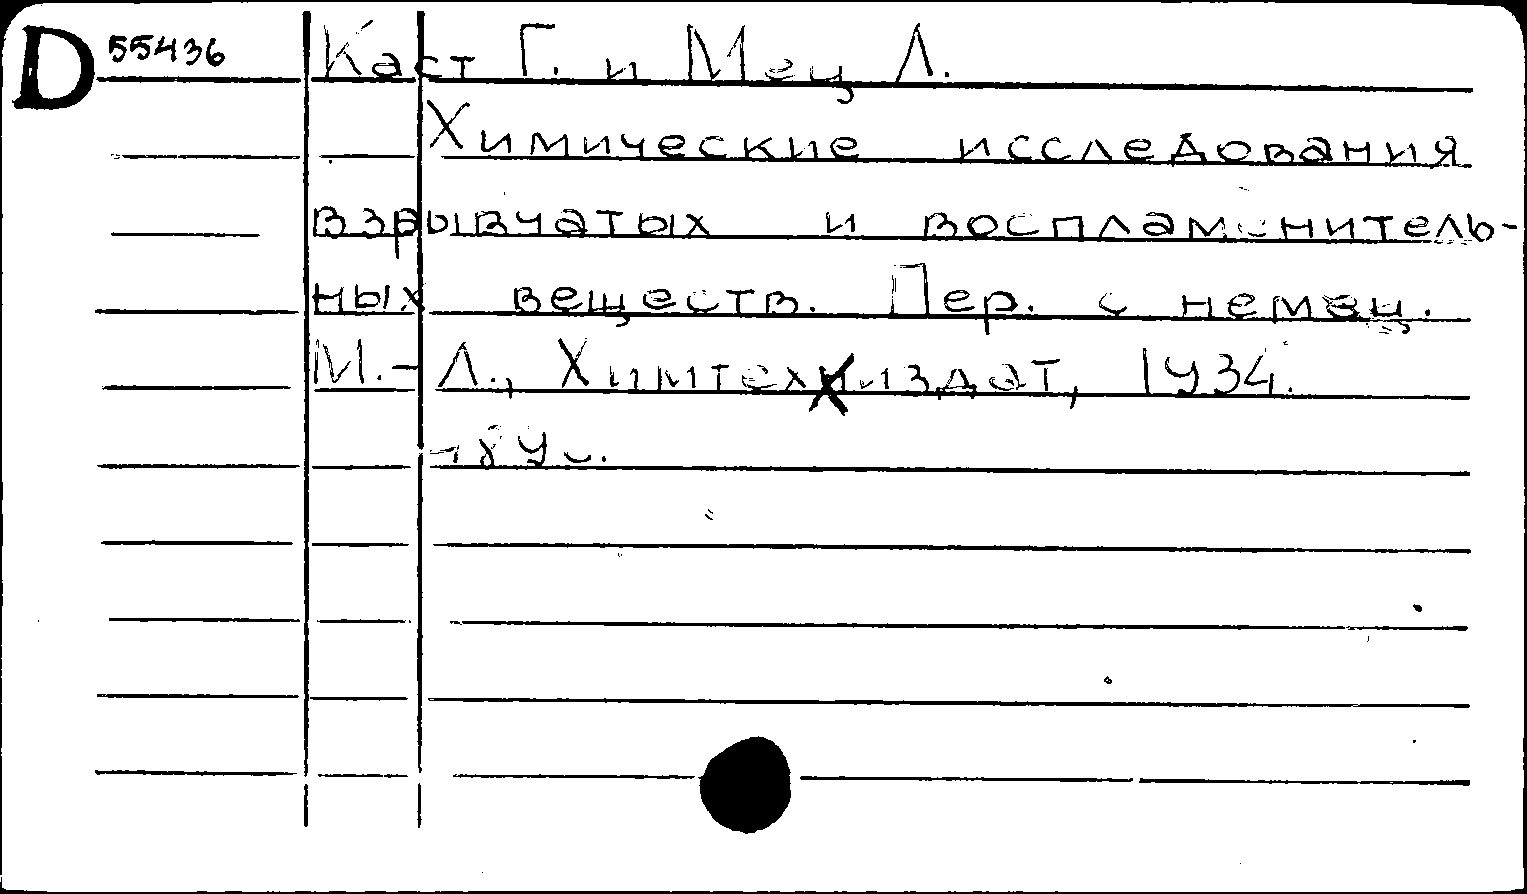 D 55436 Каст Г. и Мец Л.
Химические исследования
взрывчатых и воспламенитель-
ных веществ. Пер. с немец.
М.-Л., Химтехиздат, 1934.